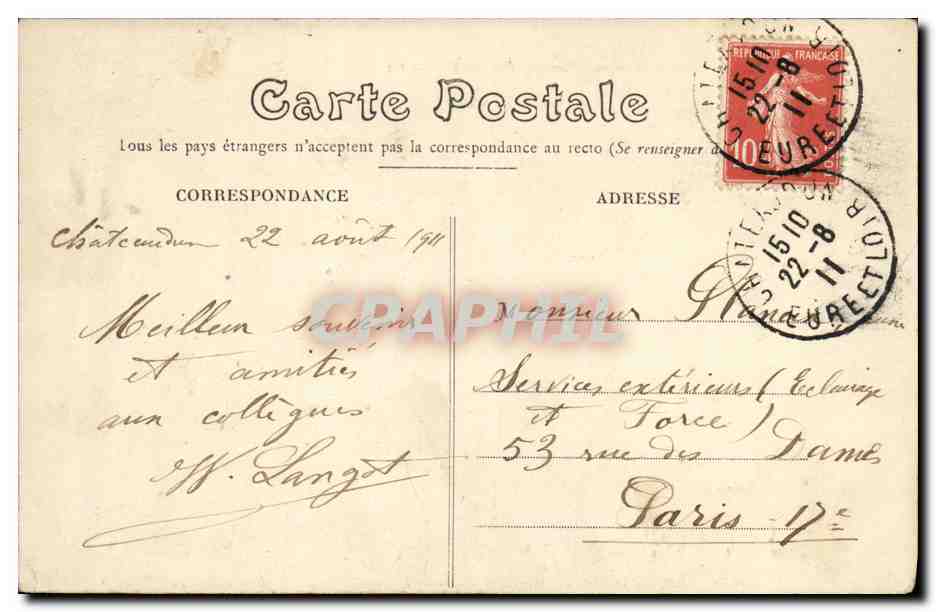 Carte Postale
Tous les pays étrangers n'acceptent pas la correspondance au recto (Se renseigner à
RÉPUBLIQUE FRANÇAISE
10
15 10
22-8
11
EURE ET LOIR
CORRESPONDANCE
Châteaudun 22 août 1911
Meilleur souvenir
et amitiés
aux collègues
W. Langot
ADRESSE
CHATEAUDUN
15 10
22-8
11
EURE ET LOIR
Monsieur
Services extérieurs (Eclairage
et Force)
53 rue des Dames
Paris - 17e
CRAPHIL